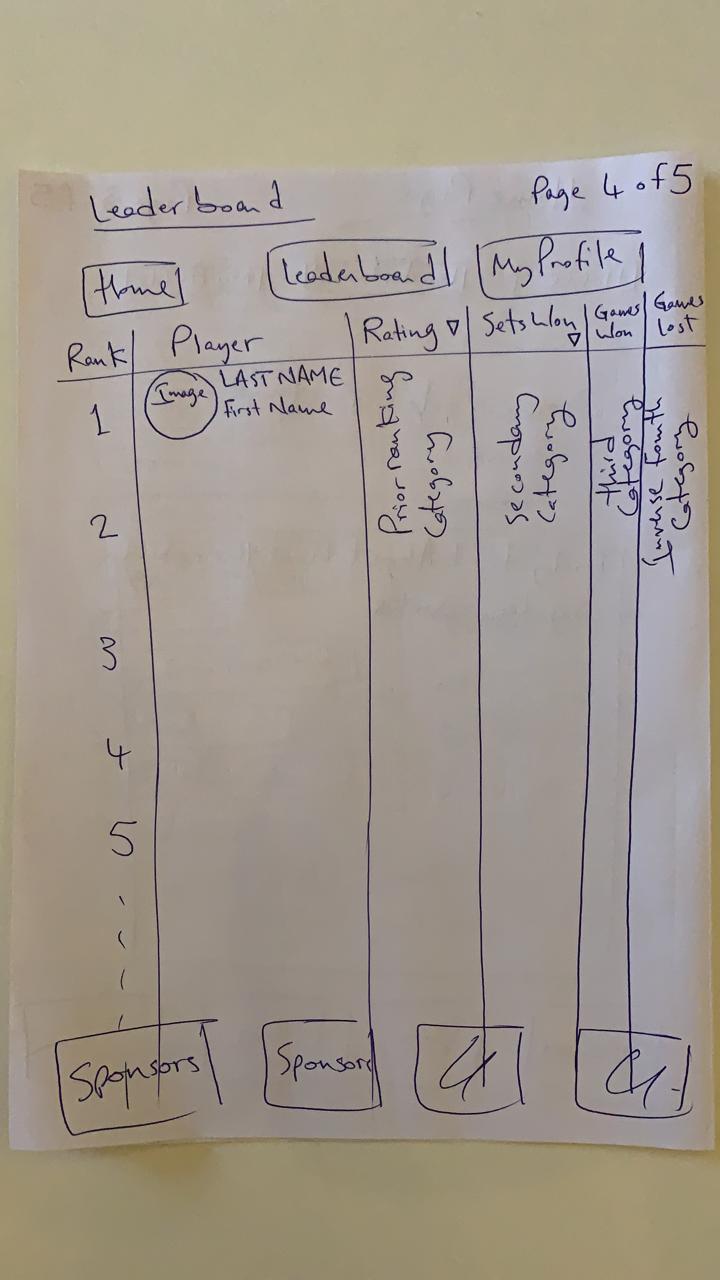 Leaderboard
Page 4 of 5
Home
Leaderboard
My Profile
Rank
Player
Rating ▽
Sets Won ▽
Games Won
Games Lost
1
Image
LAST NAME
First Name
Prior ranking
Category
Secondary
Category
Third
Category
Inverse fourth
Category
2
3
4
5
Sponsors
Sponsors